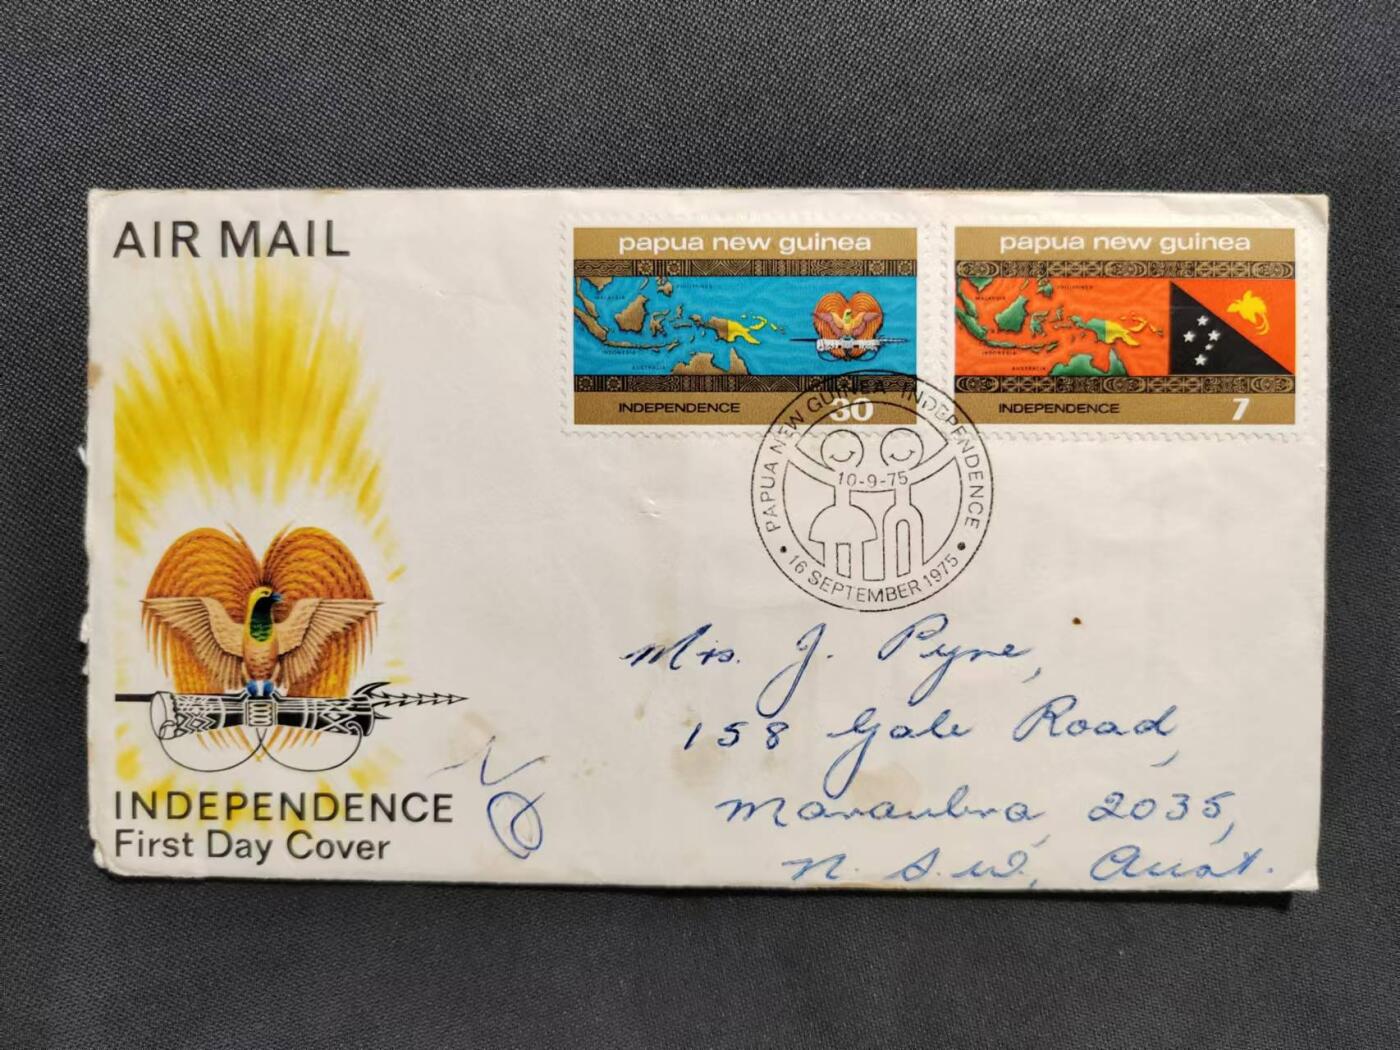 AIR MAIL
papua new guinea
MALAYSIA
PHILIPPINES
INDONESIA
AUSTRALIA
INDEPENDENCE
30
papua new guinea
MALAYSIA
PHILIPPINES
INDONESIA
AUSTRALIA
INDEPENDENCE
7
PAPUA NEW GUINEA INDEPENDENCE
10-9-75
• 16 SEPTEMBER 1975 •
Mrs. J. Pyne,
158 Gale Road,
Maroubra, 2035,
N. S. W, Aust.
INDEPENDENCE
First Day Cover